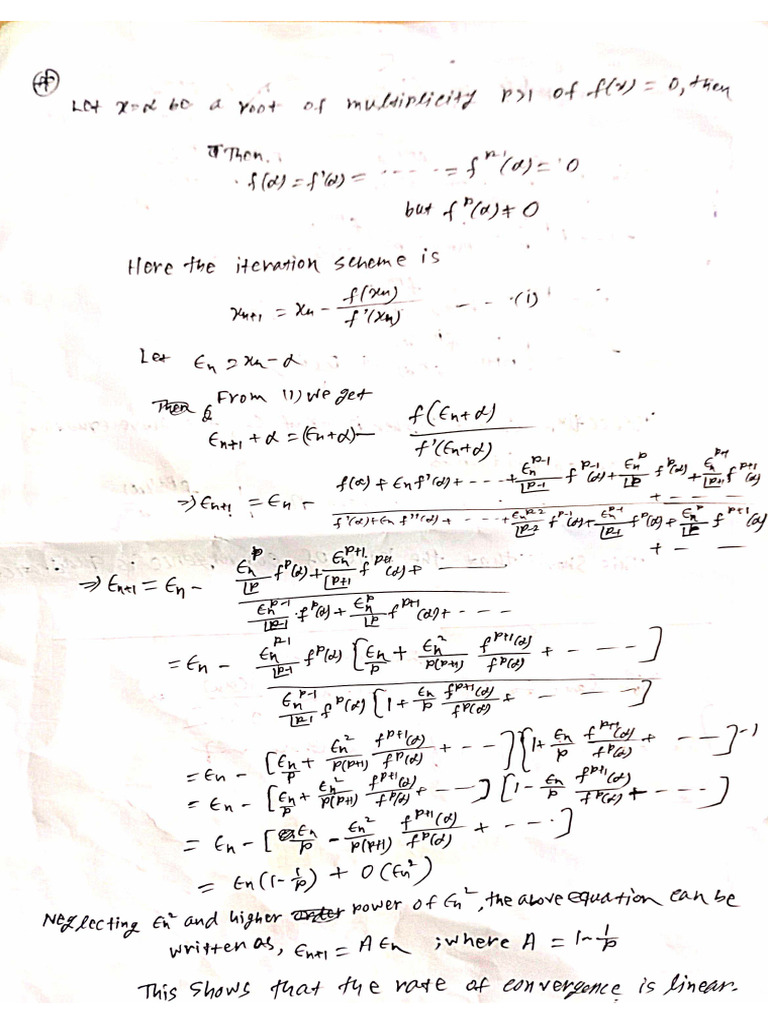 ④
Let x=α be a root of multiplicity p>1 of f(x) = 0, then
Then.
f(α) = f'(α) = ------ = f^{p-1}(α) = 0
but f^p(α) ≠ 0
Here the iteration scheme is
x_{n+1} = x_n - f(x_n)/f'(x_n) --- (i)
Let ε_n = x_n - α
From (1) we get
ε_{n+1} + α = (ε_n+α) - f(ε_n+α)/f'(ε_n+α)
⇒ ε_{n+1} = ε_n - [f(α) + ε_n f'(α) + --- + ε_n^{p-1}/⌊p-1 f^{p-1}(α) + ε_n^p/⌊p f^p(α) + ε_n^{p+1}/⌊p+1 f^{p+1}(α) + -----] / [f'(α) + ε_n f''(α) + --- + ε_n^{p-2}/⌊p-2 f^{p-1}(α) + ε_n^{p-1}/⌊p-1 f^p(α) + ε_n^p/⌊p f^{p+1}(α) + -----]
⇒ ε_{n+1} = ε_n - [ε_n^p/⌊p f^p(α) + ε_n^{p+1}/⌊p+1 f^{p+1}(α) + -----] / [ε_n^{p-1}/⌊p-1 . f^p(α) + ε_n^p/⌊p f^{p+1}(α) + ---]
= ε_n - ε_n^{p-1}/⌊p-1 f^p(α) [ε_n/p + ε_n^2/p(p+1) f^{p+1}(α)/f^p(α) + ----] / ε_n^{p-1}/⌊p-1 f^p(α) [1 + ε_n/p f^{p+1}(α)/f^p(α) + -----]
= ε_n - [ε_n/p + ε_n^2/p(p+1) f^{p+1}(α)/f^p(α) + ---][1 + ε_n/p f^{p+1}(α)/f^p(α) + ---]^{-1}
= ε_n - [ε_n/p + ε_n^2/p(p+1) f^{p+1}(α)/f^p(α) + ---][1 - ε_n/p f^{p+1}(α)/f^p(α) + ----]
= ε_n - [ε_n/p - ε_n^2/p(p+1) f^{p+1}(α)/f^p(α) + ----]
= ε_n(1-1/p) + O(ε_n^2)
Neglecting ε_n^2 and higher power of ε_n^2, the above equation can be
written as, ε_{n+1} = A ε_n ; where A = 1-1/p
This shows that the rate of convergence is linear.